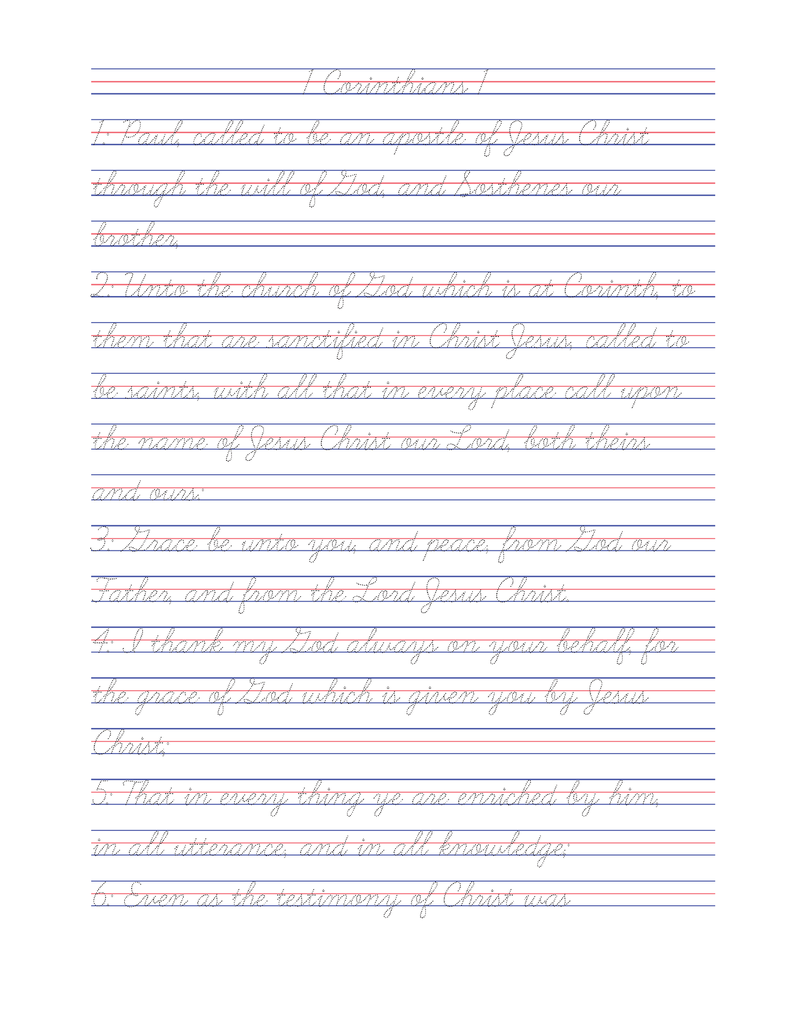 1 Corinthians 1
1: Paul, called to be an apostle of Jesus Christ
through the will of God, and Sosthenes our
brother,
2: Unto the church of God which is at Corinth, to
them that are sanctified in Christ Jesus, called to
be saints, with all that in every place call upon
the name of Jesus Christ our Lord, both theirs
and ours:
3: Grace be unto you, and peace, from God our
Father, and from the Lord Jesus Christ.
4: I thank my God always on your behalf, for
the grace of God which is given you by Jesus
Christ;
5: That in every thing ye are enriched by him,
in all utterance, and in all knowledge;
6: Even as the testimony of Christ was